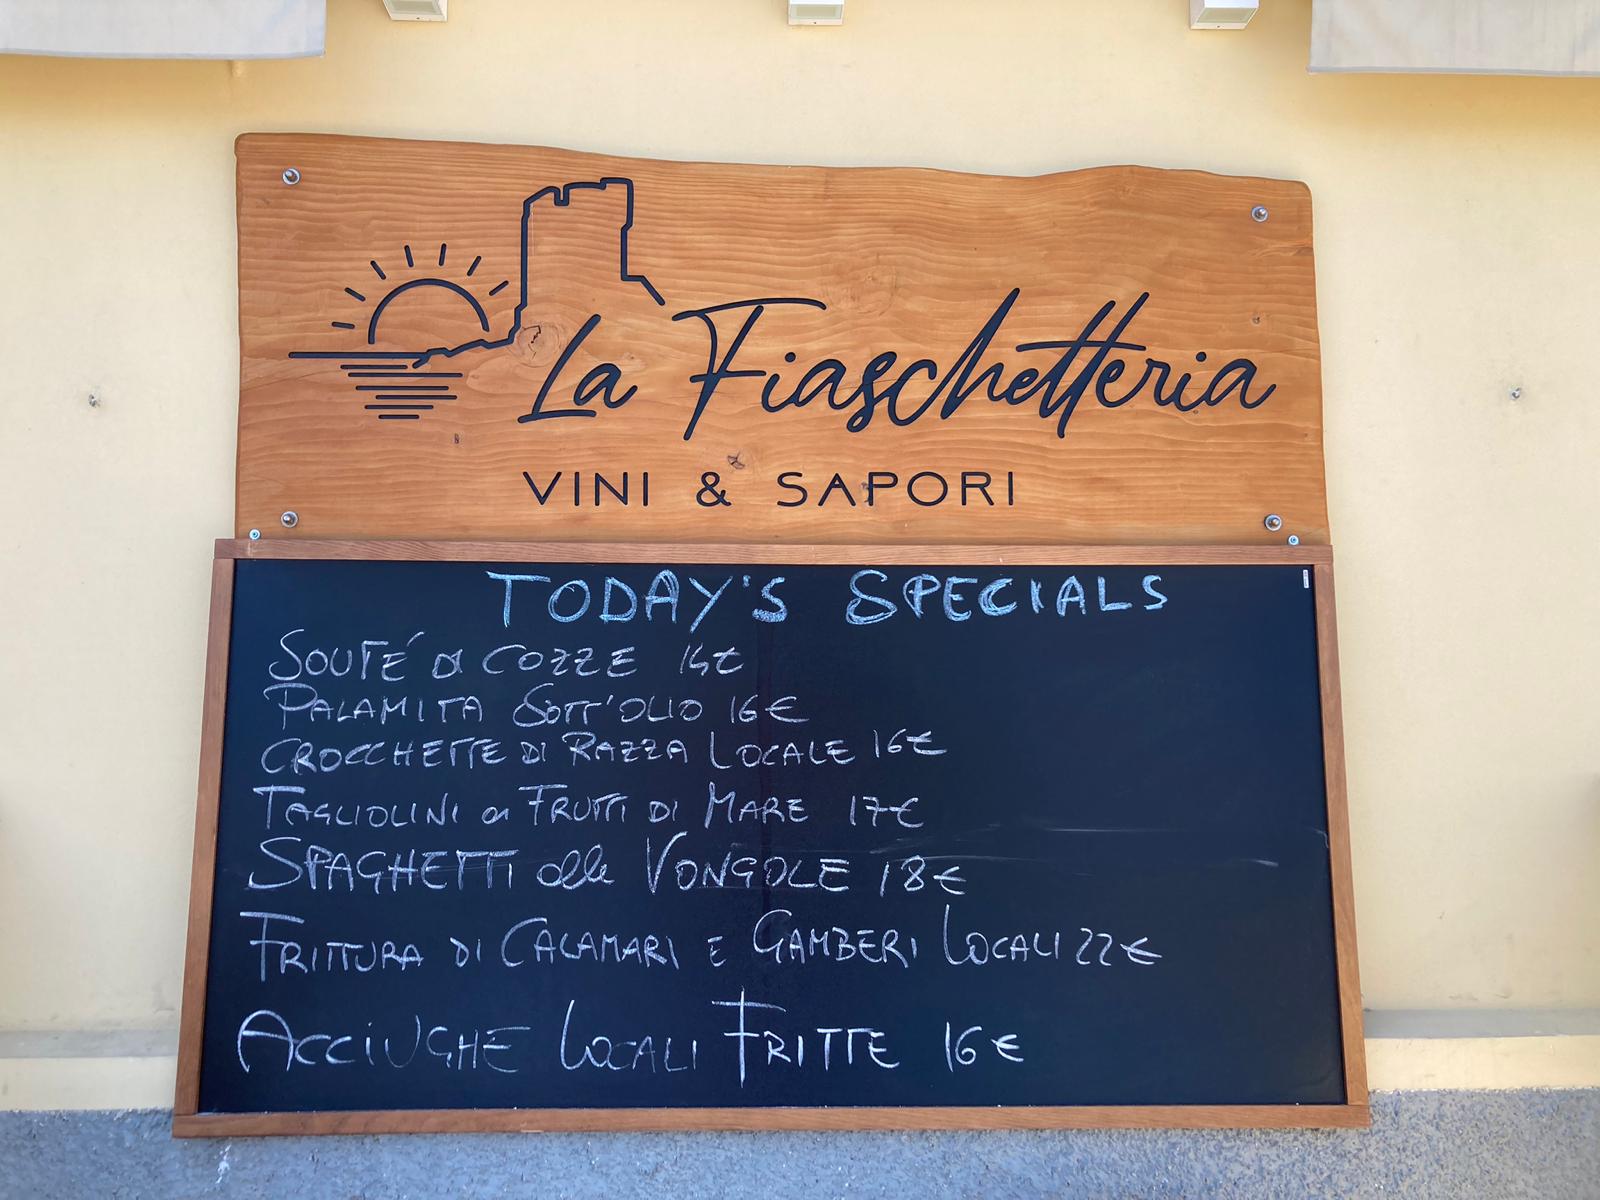 La Fiaschetteria
VINI & SAPORI
TODAY'S SPECIALS
SOUTÉ DI COZZE 14€
PALAMITA SOTT'OLIO 16€
CROCCHETTE DI RAZZA LOCALE 16€
TAGLIOLINI ai FRUTTI DI MARE 17€
SPAGHETTI alle VONGOLE 18€
FRITTURA DI CALAMARI E GAMBERI LOCALI 22€
ACCIUGHE LOCALI FRITTE 16€